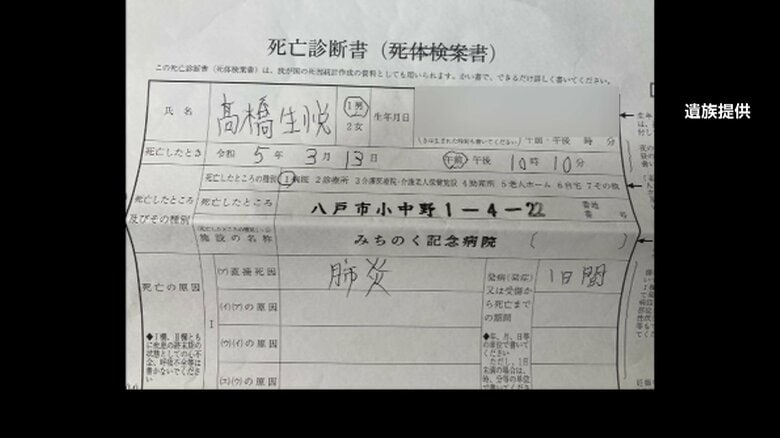 死亡診断書（死体検案書）
この死亡診断書（死体検案書）は、我が国の死因統計作成の資料としても用いられます。かい書で、できるだけ詳しく書いてください。
遺族提供
氏 名
髙橋生悦
1男
2女
生年月日
（生まれてから30日以内に死亡したときは生まれた時刻も書いてください） 午前・午後 時 分
死亡したとき 令和 5 年 3 月 13 日 午前 午後 10 時 10 分
死亡したところ及びその種別
死亡したところの種別 1病院 2診療所 3介護医療院・介護老人保健施設 4助産所 5老人ホーム 6自宅 7その他
死亡したところ 八戸市小中野1-4-22 番地
番 号
施設の名称 みちのく記念病院 （ ）
死亡の原因
(ア)直接死因 肺炎
発病（発症）又は受傷から死亡までの期間
1日間
(イ)(ア)の原因
I
◆I欄、II欄ともに疾患の終末期の状態としての心不全、呼吸不全等は書かないでください
(ウ)(イ)の原因
◆年、月、日等の単位で書いてください
ただし、1日未満の場合は、時、分等の単位で書いてください
(エ)(ウ)の原因